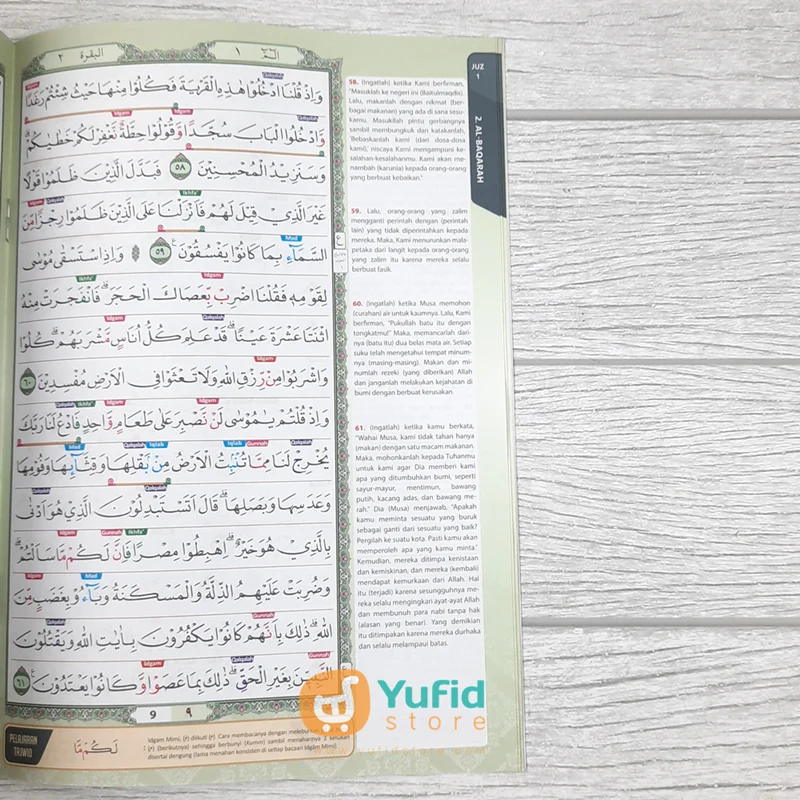 البقرة ٢
الۤمّۤ ١
JUZ
1
2. AL-BAQARAH
وَاِذْ قُلْنَا ادْخُلُوْا هٰذِهِ الْقَرْيَةَ فَكُلُوْا مِنْهَا حَيْثُ شِئْتُمْ رَغَدًا
وَّادْخُلُوا الْبَابَ سُجَّدًا وَّقُوْلُوْا حِطَّةٌ نَّغْفِرْ لَكُمْ خَطٰيٰكُمْ
وَسَنَزِيْدُ الْمُحْسِنِيْنَ ٥٨ فَبَدَّلَ الَّذِيْنَ ظَلَمُوْا قَوْلًا
غَيْرَ الَّذِيْ قِيْلَ لَهُمْ فَاَنْزَلْنَا عَلَى الَّذِيْنَ ظَلَمُوْا رِجْزًا مِّنَ
السَّمَاۤءِ بِمَا كَانُوْا يَفْسُقُوْنَ ٥٩ وَاِذِ اسْتَسْقٰى مُوْسٰى
لِقَوْمِهٖ فَقُلْنَا اضْرِبْ بِّعَصَاكَ الْحَجَرَۗ فَانْفَجَرَتْ مِنْهُ
اثْنَتَا عَشْرَةَ عَيْنًاۗ قَدْ عَلِمَ كُلُّ اُنَاسٍ مَّشْرَبَهُمْۗ كُلُوْا
وَاشْرَبُوْا مِنْ رِّزْقِ اللّٰهِ وَلَا تَعْثَوْا فِى الْاَرْضِ مُفْسِدِيْنَ ٦٠
وَاِذْ قُلْتُمْ يٰمُوْسٰى لَنْ نَّصْبِرَ عَلٰى طَعَامٍ وَّاحِدٍ فَادْعُ لَنَا رَبَّكَ
يُخْرِجْ لَنَا مِمَّا تُنْۢبِتُ الْاَرْضُ مِنْۢ بَقْلِهَا وَقِثَّاۤىِٕهَا وَفُوْمِهَا
وَعَدَسِهَا وَبَصَلِهَاۗ قَالَ اَتَسْتَبْدِلُوْنَ الَّذِيْ هُوَ اَدْنٰى
بِالَّذِيْ هُوَ خَيْرٌۗ اِهْبِطُوْا مِصْرًا فَاِنَّ لَكُمْ مَّا سَاَلْتُمْۗ
وَضُرِبَتْ عَلَيْهِمُ الذِّلَّةُ وَالْمَسْكَنَةُ وَبَاۤءُوْ بِغَضَبٍ مِّنَ
اللّٰهِۗ ذٰلِكَ بِاَنَّهُمْ كَانُوْا يَكْفُرُوْنَ بِاٰيٰتِ اللّٰهِ وَيَقْتُلُوْنَ
النَّبِيّٖنَ بِغَيْرِ الْحَقِّۗ ذٰلِكَ بِمَا عَصَوْا وَّكَانُوْا يَعْتَدُوْنَ ٦١
58. (Ingatlah) ketika Kami berfirman,
"Masuklah ke negeri ini (Baitulmaqdis).
Lalu, makanlah dengan nikmat (ber-
bagai makanan) yang ada di sana sesu-
kamu. Masukilah pintu gerbangnya
sambil membungkuk dan katakanlah,
'Bebaskanlah kami (dari dosa-dosa
kami),' niscaya Kami mengampuni ke-
salahan-kesalahanmu. Kami akan me-
nambah (karunia) kepada orang-orang
yang berbuat kebaikan."
59. Lalu, orang-orang yang zalim
mengganti perintah dengan (perintah
lain) yang tidak diperintahkan kepada
mereka. Maka, Kami menurunkan mala-
petaka dari langit kepada orang-orang
yang zalim itu karena mereka selalu
berbuat fasik.
60. (Ingatlah) ketika Musa memohon
(curahan) air untuk kaumnya. Lalu, Kami
berfirman, "Pukullah batu itu dengan
tongkatmu!" Maka, memancarlah dari-
nya (batu itu) dua belas mata air. Setiap
suku telah mengetahui tempat minum-
nya (masing-masing). Makan dan mi-
numlah rezeki (yang diberikan) Allah
dan janganlah melakukan kejahatan di
bumi dengan berbuat kerusakan.
61. (Ingatlah) ketika kamu berkata,
"Wahai Musa, kami tidak tahan hanya
(makan) dengan satu macam makanan.
Maka, mohonkanlah kepada Tuhanmu
untuk kami agar Dia memberi kami
apa yang ditumbuhkan bumi, seperti
sayur-mayur, mentimun, bawang
putih, kacang adas, dan bawang me-
rah." Dia (Musa) menjawab, "Apakah
kamu meminta sesuatu yang buruk
sebagai ganti dari sesuatu yang baik?
Pergilah ke suatu kota. Pasti kamu akan
memperoleh apa yang kamu minta."
Kemudian, mereka ditimpa kenistaan
dan kemiskinan, dan mereka (kembali)
mendapat kemurkaan dari Allah. Hal
itu (terjadi) karena sesungguhnya me-
reka selalu mengingkari ayat-ayat Allah
dan membunuh para nabi tanpa hak
(alasan yang benar). Yang demikian
itu ditimpakan karena mereka durhaka
dan selalu melampaui batas.
9 ٩
PELAJARAN
TAJWID
لَكُمْ مَّا
Idgam Mimi, (م) diikuti (م). Cara membacanya dengan
(م) (berikutnya) sehingga berbunyi (Kumm) sambil menahannya 2 ketukan
disertai dengung (lama menahan konsisten di setiap bacaan Idgām Mimi)
Yufid
store